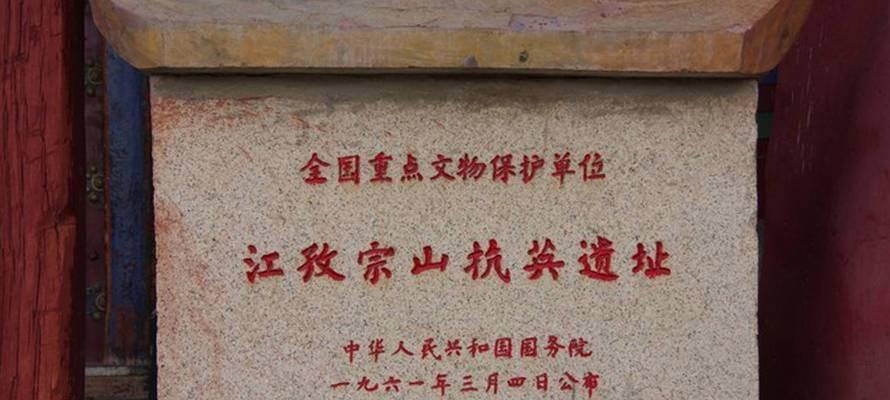 全国重点文物保护单位
江孜宗山抗英遗址
中华人民共和国国务院
一九六一年三月四日公布